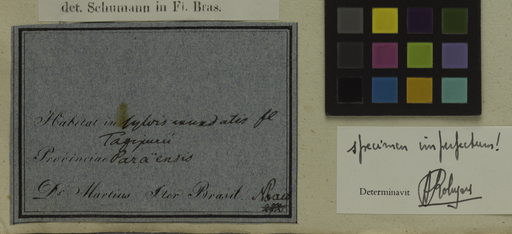 det. Schumann in Fl. Bras.
Habitat in sylvis inundatis fl
Tagipurú
Provinciae Paraënsis
Dr. Martius Iter Brasil
specimen imperfectum!
Determinavit